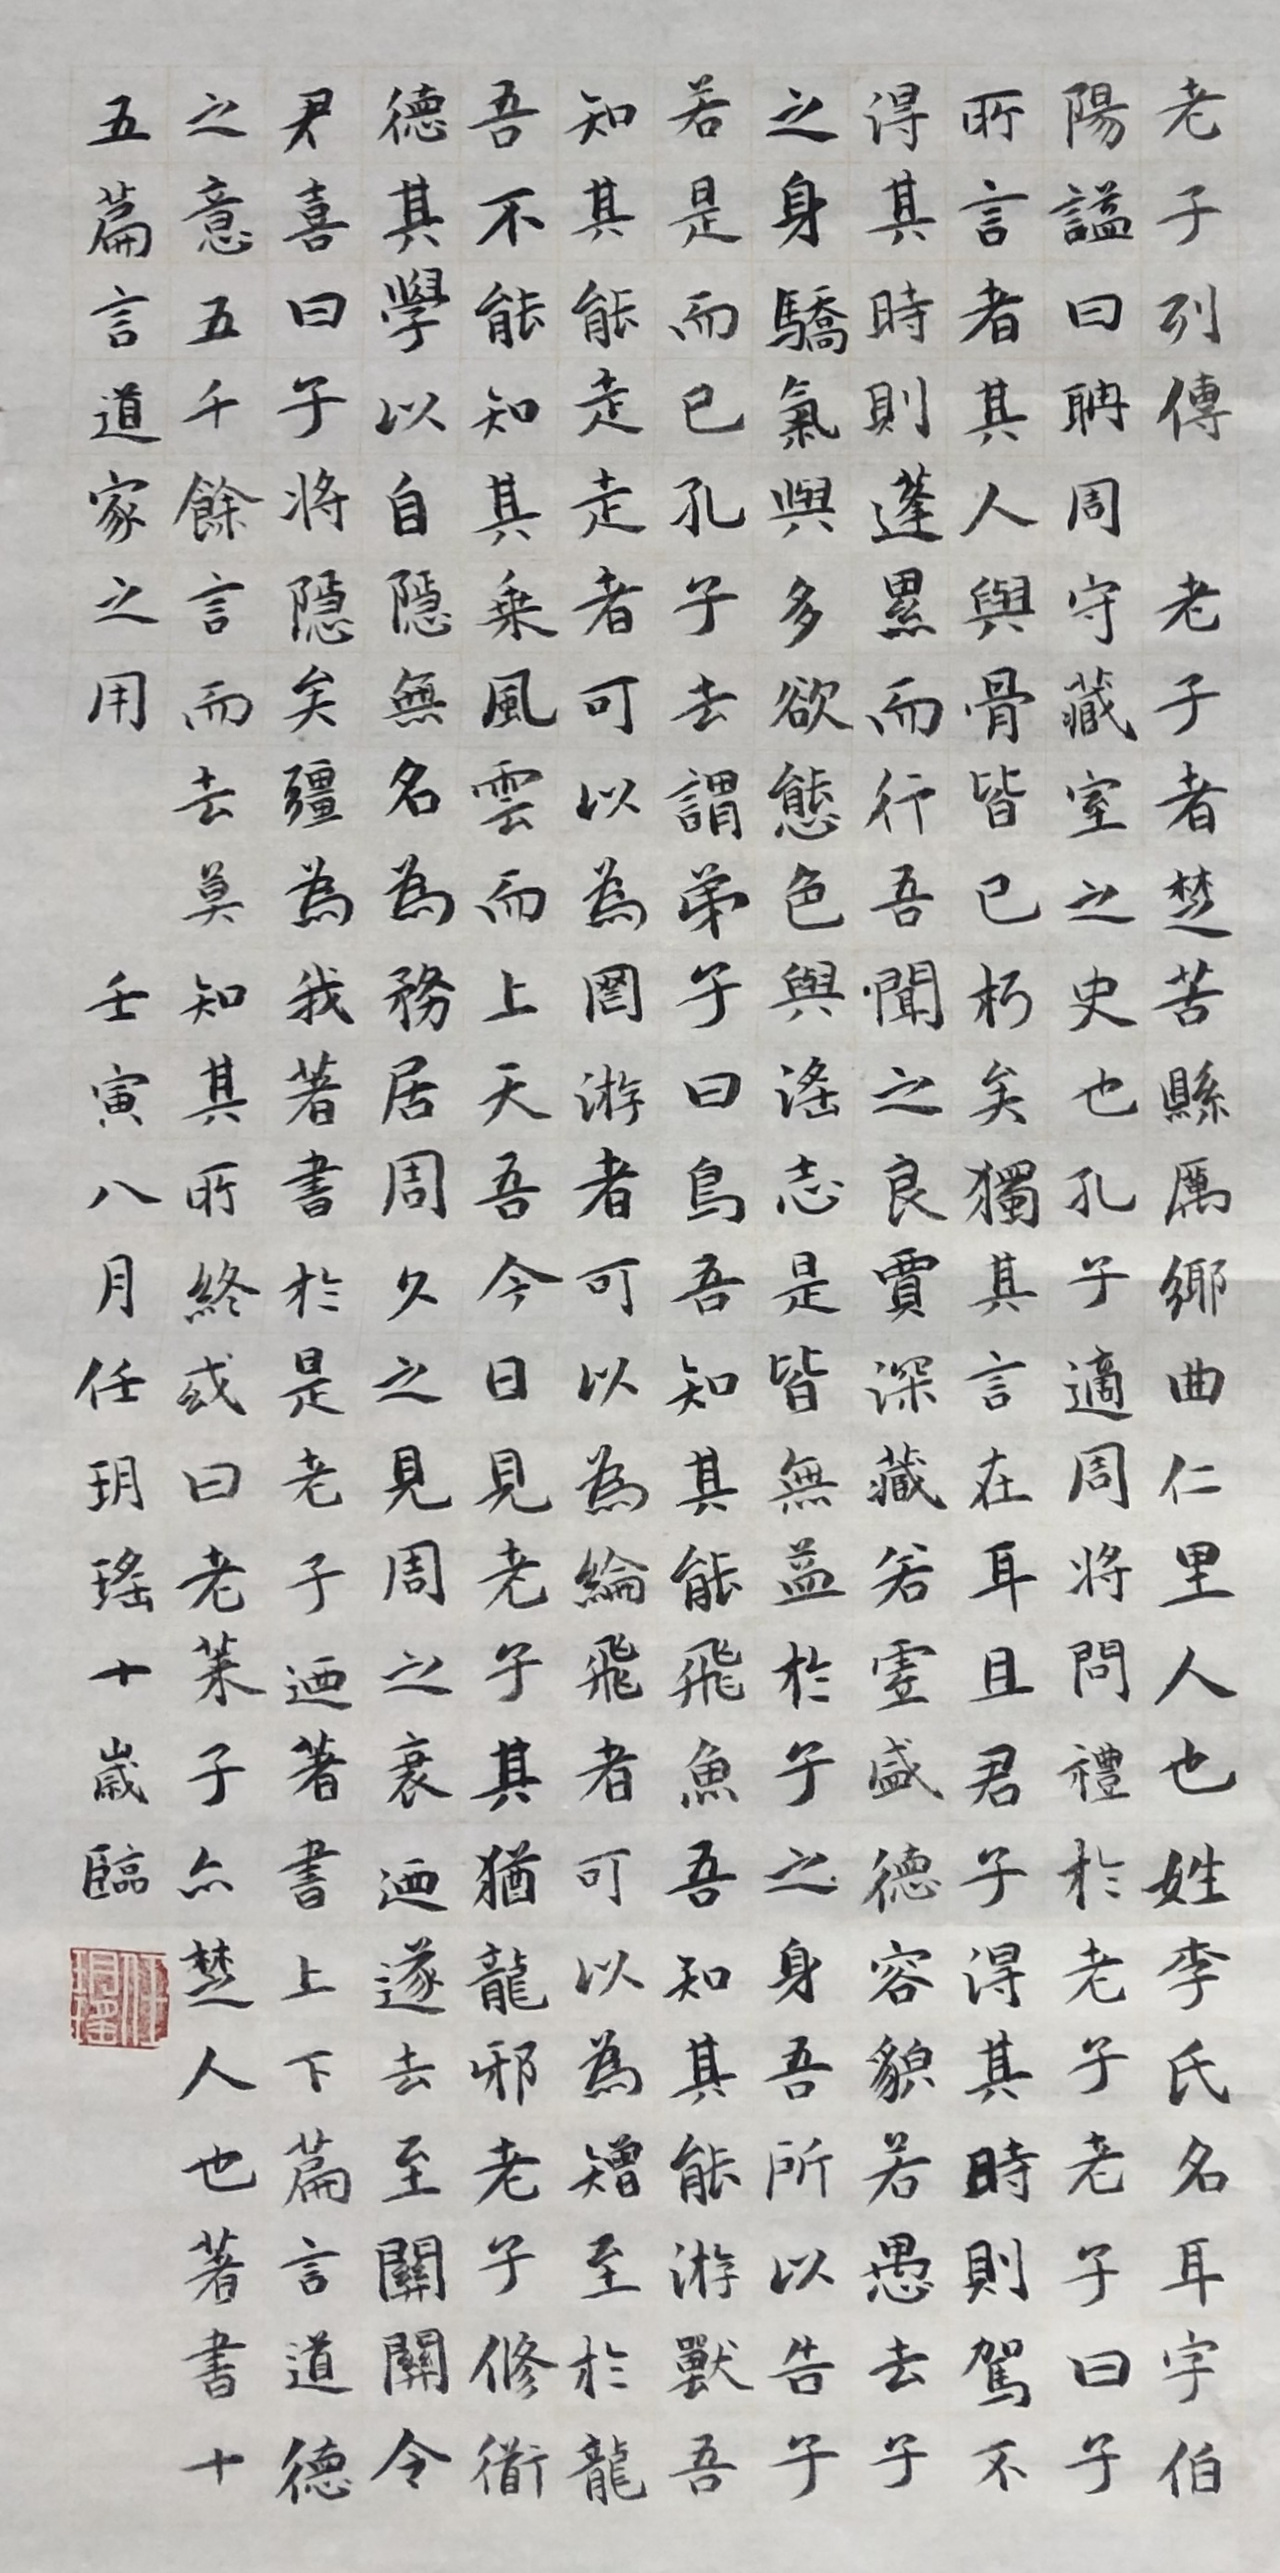 老子列傳 老子者楚苦縣厲鄉曲仁里人也姓李氏名耳字伯
陽謚曰聃周守藏室之史也孔子適周將問禮於老子老子曰子
所言者其人與骨皆已朽矣獨其言在耳且君子得其時則駕不
得其時則蓬累而行吾聞之良賈深藏若虛盛德容貌若愚去子
之身驕氣與多欲態色與滛志是皆無益於子之身吾所以告子
若是而已孔子去謂弟子曰鳥吾知其能飛魚吾知其能游獸吾
知其能走走者可以為罔游者可以為綸飛者可以為矰至於龍
吾不能知其乗風雲而上天吾今日見老子其猶龍邪老子修衟
德其學以自隱無名為務居周久之見周之衰迺遂去至關關令
尹喜曰子將隱矣彊為我著書於是老子迺著書上下篇言道德
之意五千餘言而去莫知其所終或曰老莱子亦楚人也著書十
五篇言道家之用 壬寅八月任玥瑤十歲臨
任玥瑤